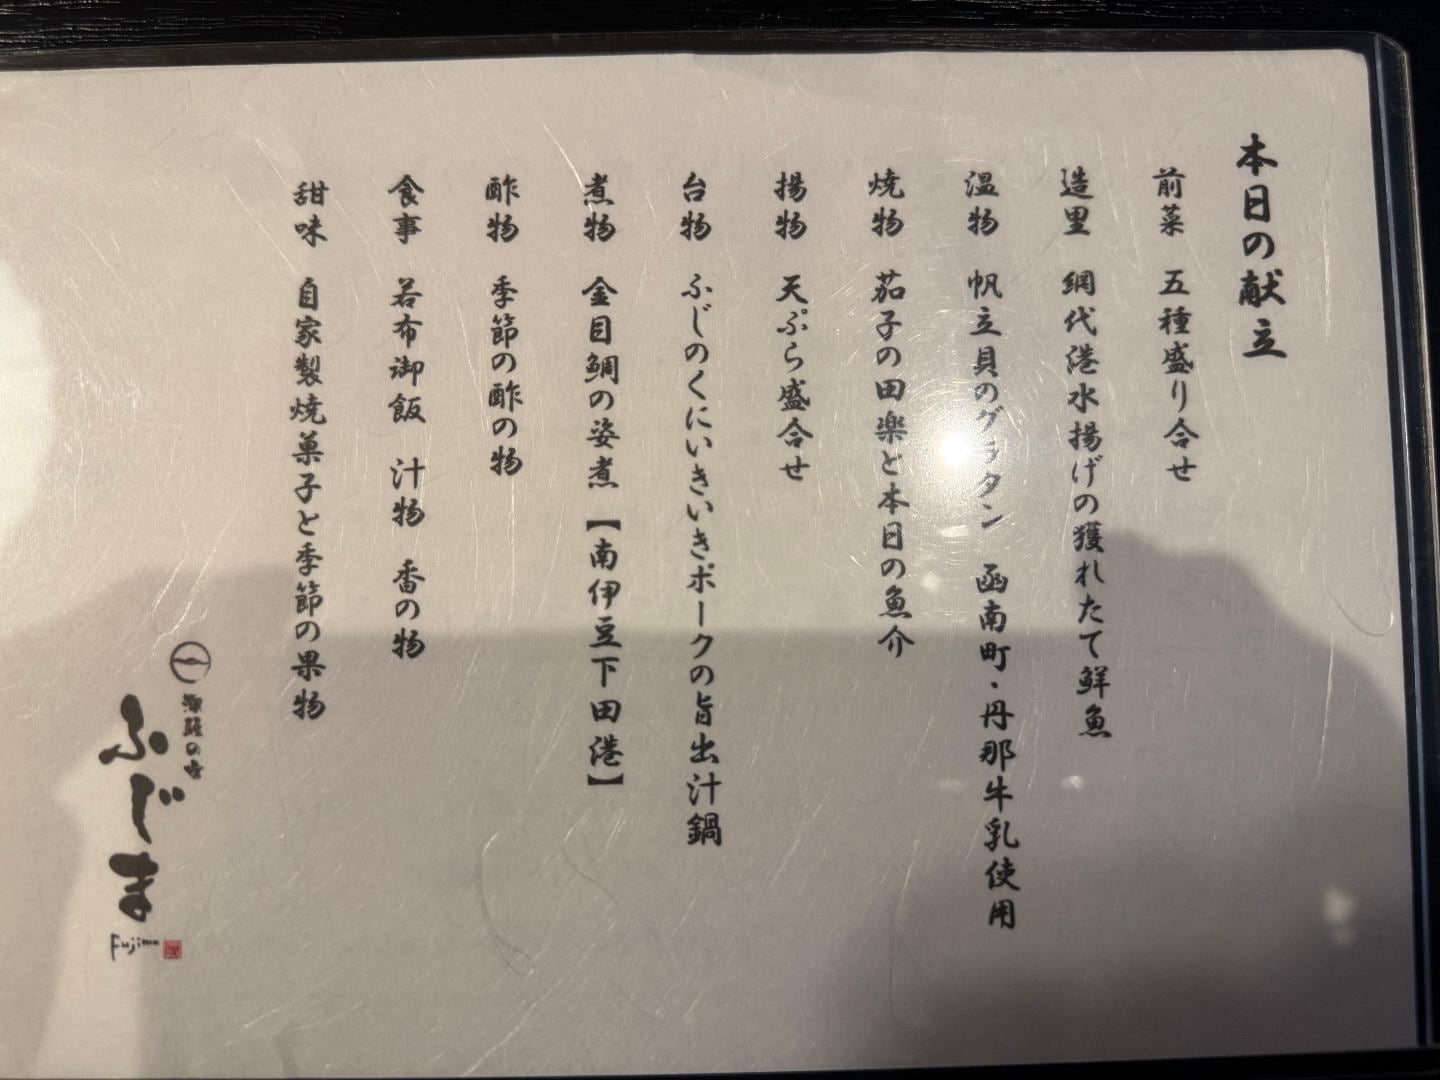 本日の献立
前菜 五種盛り合せ
造里 網代港水揚げの獲れたて鮮魚
温物 帆立貝のグラタン 函南町・丹那牛乳使用
焼物 茄子の田楽と本日の魚介
揚物 天ぷら盛合せ
台物 ふじのくにいきいきポークの旨出汁鍋
煮物 金目鯛の姿煮【南伊豆下田港】
酢物 季節の酢の物
食事 若布御飯 汁物 香の物
甜味 自家製焼菓子と季節の果物
の宿
ふじま
Fujima